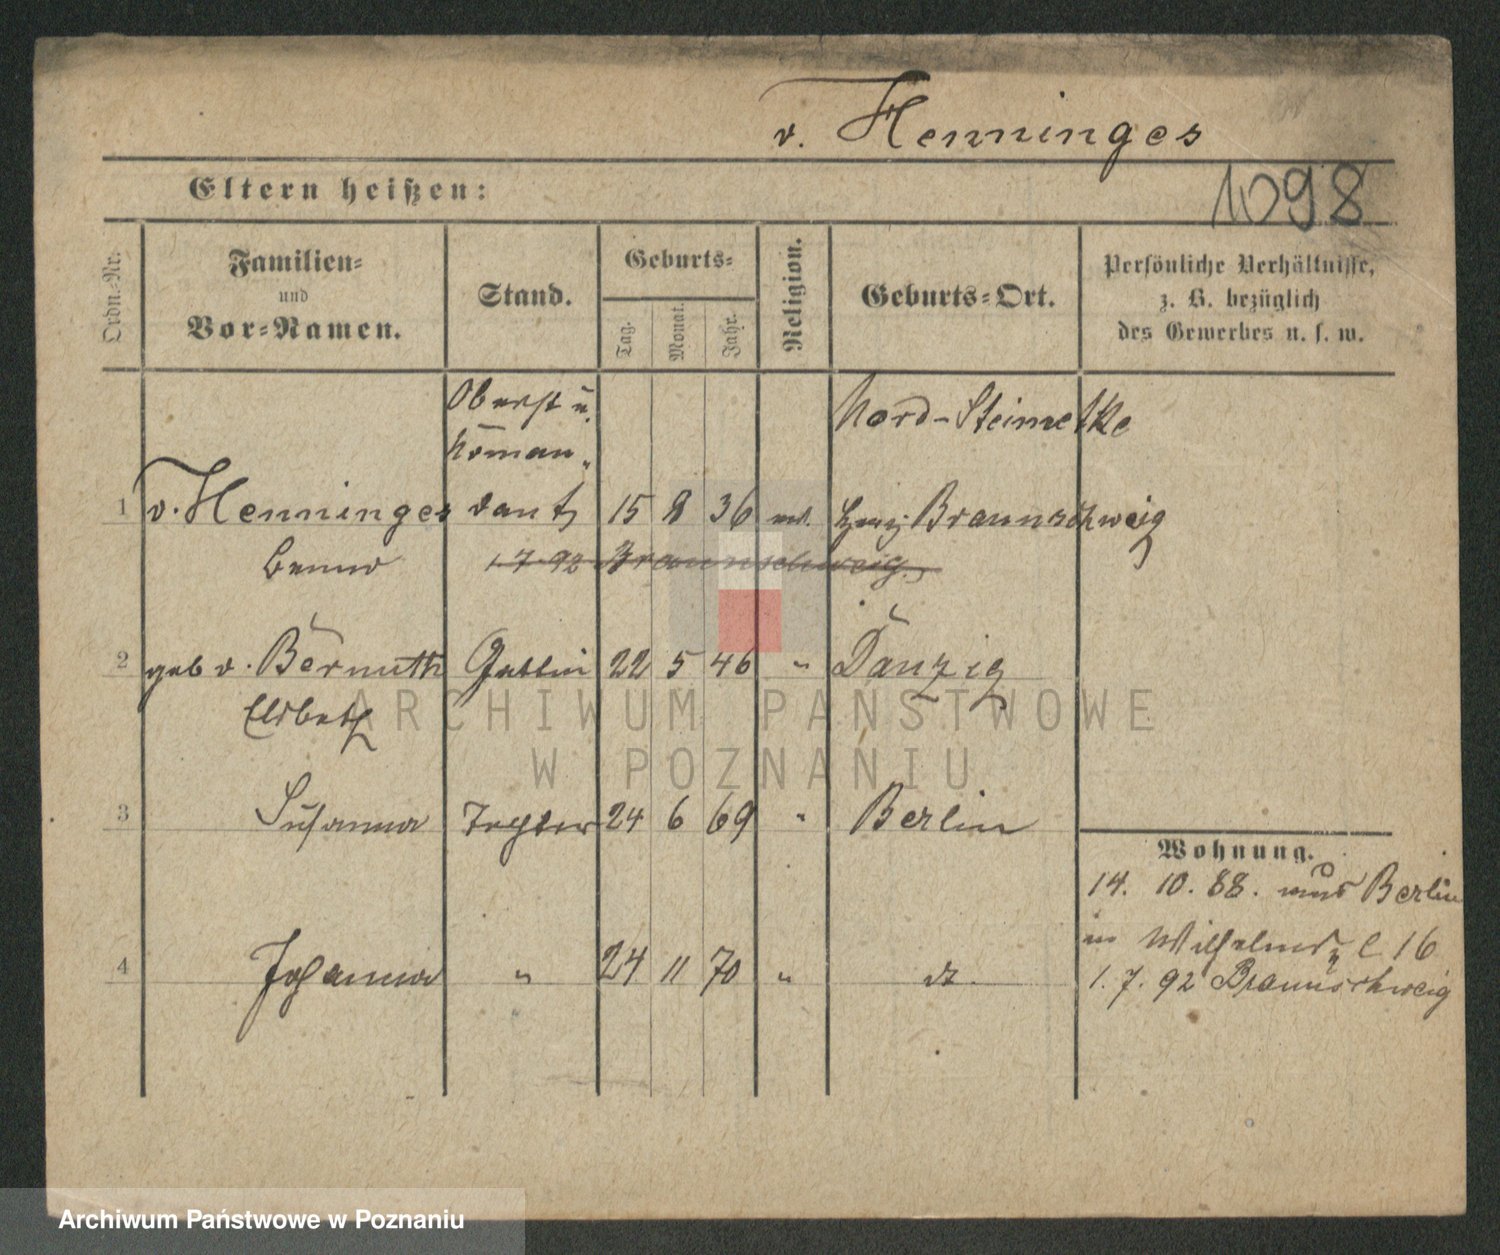 v. Henninges
1098
Eltern heißen:
Ordn.-Nr.
Familien-
und
Vor-Namen.
Stand.
Geburts-
Tag.
Monat.
Jahr.
Religion.
Geburts-Ort.
Persönliche Verhältnisse,
z. B. bezüglich
des Gewerbes u. s. w.
Oberst u.
Koman-
Nord-Steimetke
1 v. Henninges dant 15 8 36 ev. Braunschweig
Benno 1.7.92 Braunschweig
2 geb v. Bernuth Gattin 22 5 46 " Danzig
Elsbeth
3 Susanna Tochter 24 6 69 " Berlin
Wohnung.
14. 10. 88. aus Berlin
in Wilhelmstr 16
4 Johanna " 24 11 70 " dt.
1. 7. 92 Braunschweig
ARCHIWUM PAŃSTWOWE
W POZNANIU
Archiwum Państwowe w Poznaniu